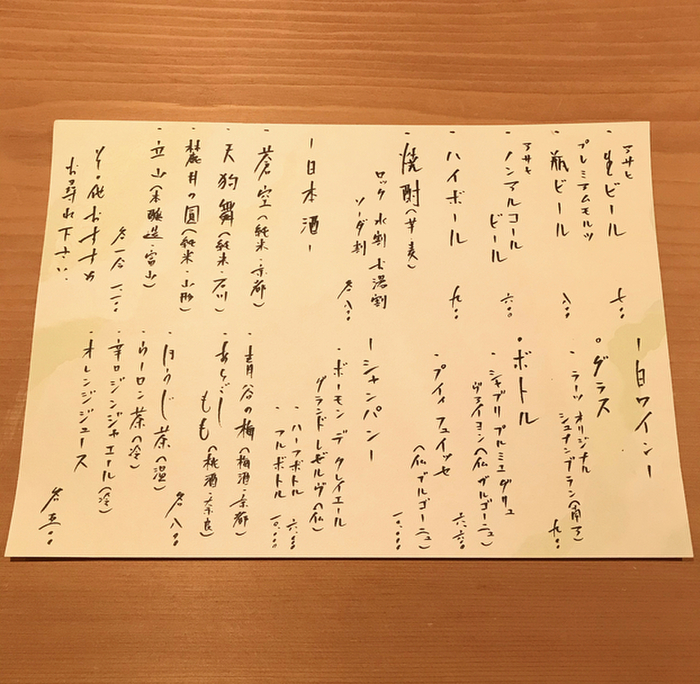 アサヒ
・生ビール 七〇〇
プレミアムモルツ
・瓶ビール 八〇〇
アサヒ
・ノンアルコール
ビール 六〇〇
・ハイボール 九〇〇
・焼酎(芋・麦)
ロック 水割 お湯割
ソーダ割
各八〇〇
ー日本酒ー
・蒼空(純米・京都)
・天狗舞(純米・石川)
・麓井の圓(純米・山形)
・立山(本醸造・富山)
各一合
その他おすすめ
お尋ね下さい。
ー白ワインー
・グラス
・ラーツ オリジナル
シュナンブラン(南ア)
九〇〇
・ボトル
・シャブリ プルミエ クリュ
ヴァイヨン(仏 ブルゴーニュ)
・プイィ フュイッセ
(仏 ブルゴーニュ)
一〇、〇〇〇
ーシャンパンー
・ボーモン デ クレイエール
グランド レゼルヴ(仏)
・ハーフボトル
・フルボトル 一〇、〇〇〇
・青谷の梅(梅酒・京都)
・あらごし
もも(桃酒・奈良)
各八〇〇
・ほうじ茶(温)
・ウーロン茶(冷)
・辛口ジンジャエール(冷)
・オレンジジュース
各五〇〇